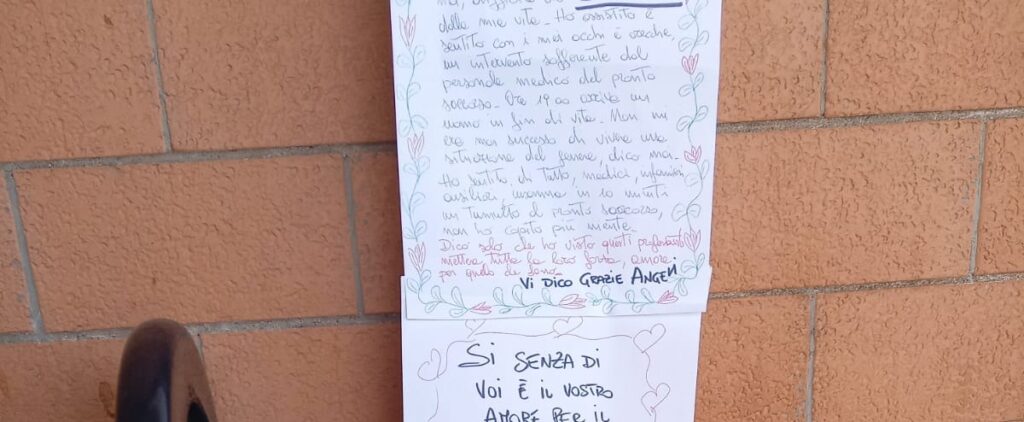 della mia vita. Ho assistito e
sentito con i miei occhi e orecchie,
un intervento sofferente del
personale medico del pronto
soccorso. Ore 19.00 arriva un
uomo in fin di vita. Non mi
era mai successo di vivere una
situazione del genere, dico mai.
Ho sentito di tutto, medici, infermieri,
ausiliari, insomma in 10 minuti
un tumulto al pronto soccorso,
non ho capito più niente.
Dico solo che ho visto questi professionisti
mettere tutta la loro forza, amore
per quello che fanno
VI DICO GRAZIE ANGELI
SI SENZA DI
VOI È IL VOSTRO
AMORE PER IL